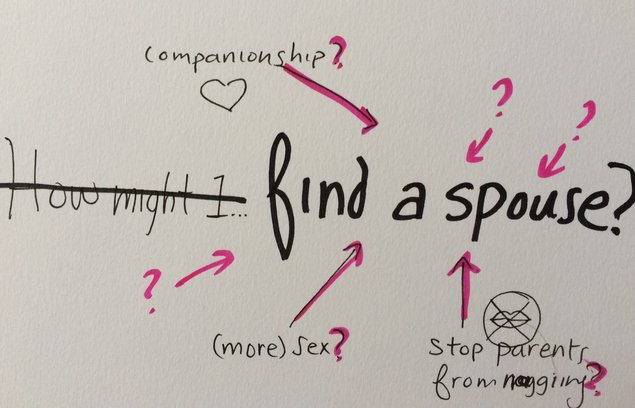 companionship?
? ?
How might I... find a spouse?
?
(more) sex?
stop parents
from nagging?